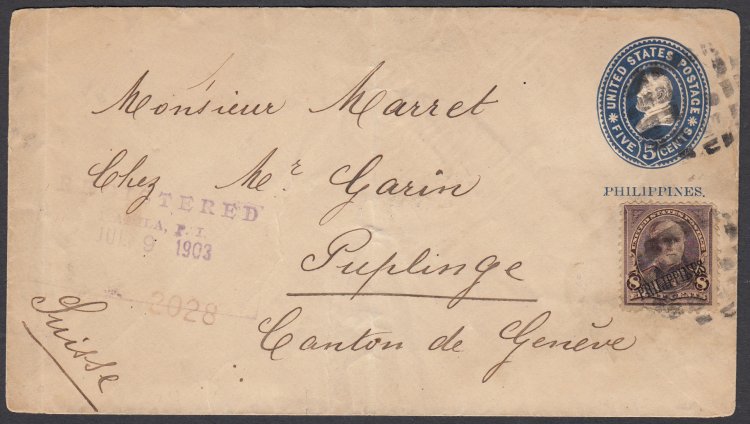 UNITED STATES POSTAGE
FIVE 5 CENTS
PHILIPPINES.
UNITED STATES
PHILIPPINES
8 8
CENTS
Monsieur Marret
Chez Mr Garin
Puplinge
Canton de Genève
Suisse
REGISTERED
P. I.
JUL 9 1903
2028